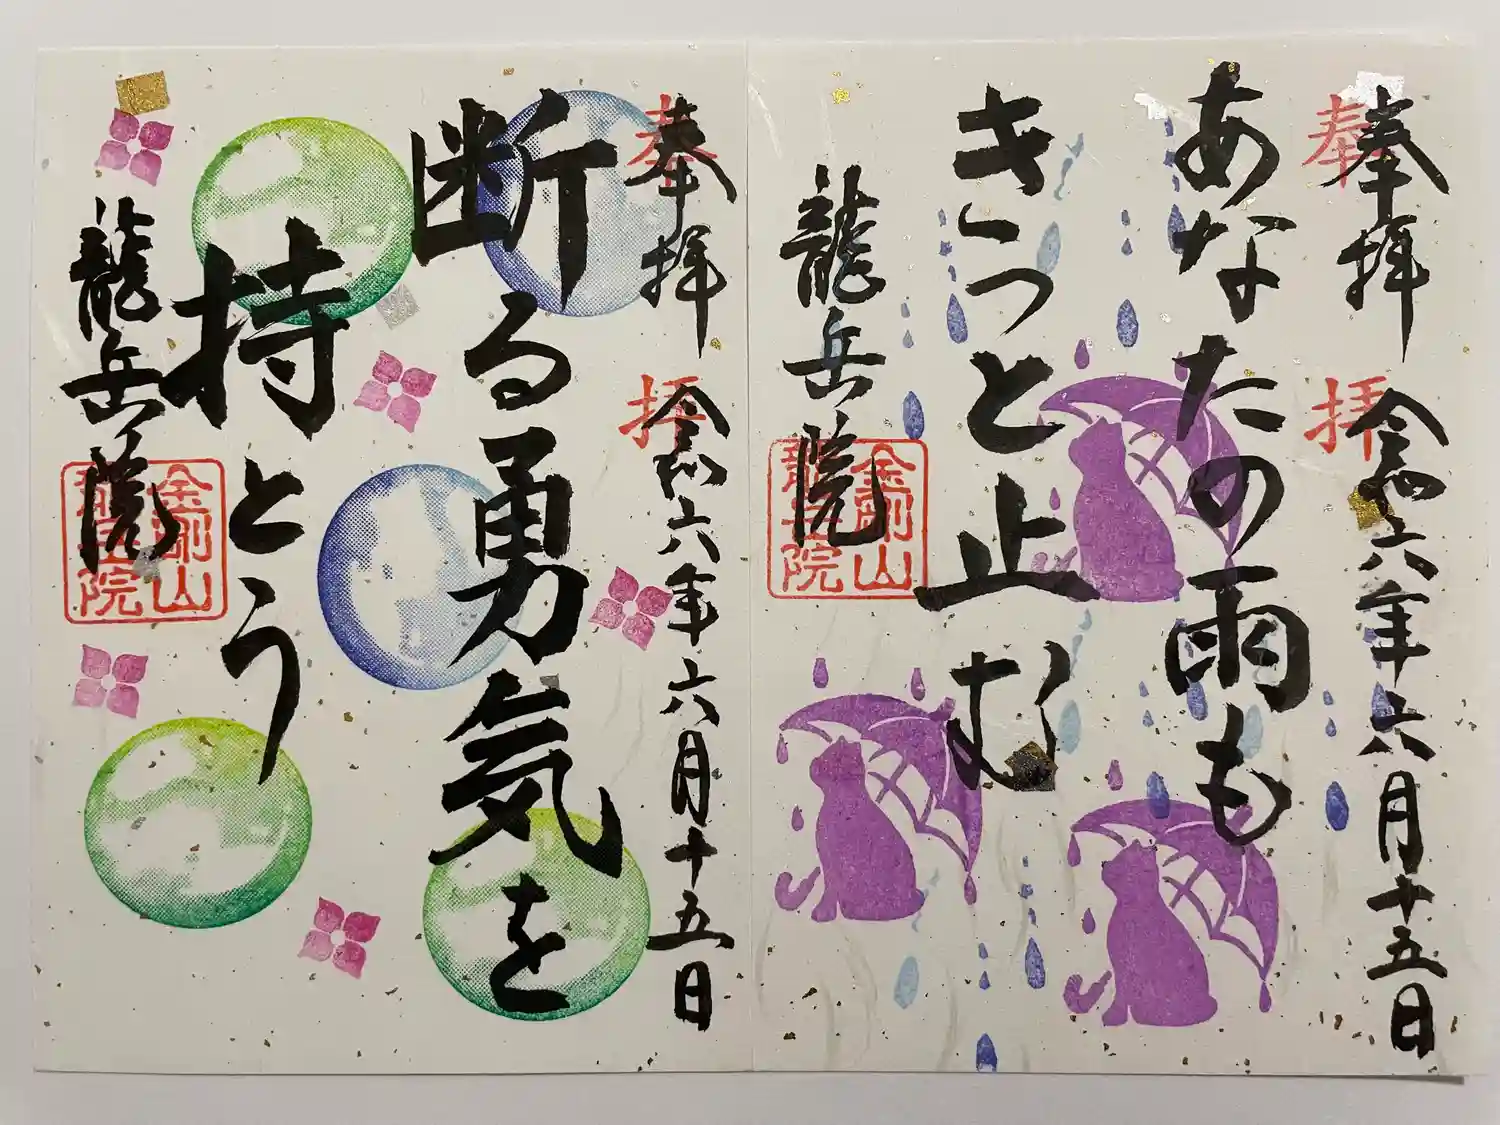 奉拝
奉拝
令和六年六月十五日
あなたの雨も
きっと止む
龍岳院
金剛山
龍岳院
奉拝
奉拝
令和六年六月十五日
断る勇気を
持とう
龍岳院
金剛山
龍岳院